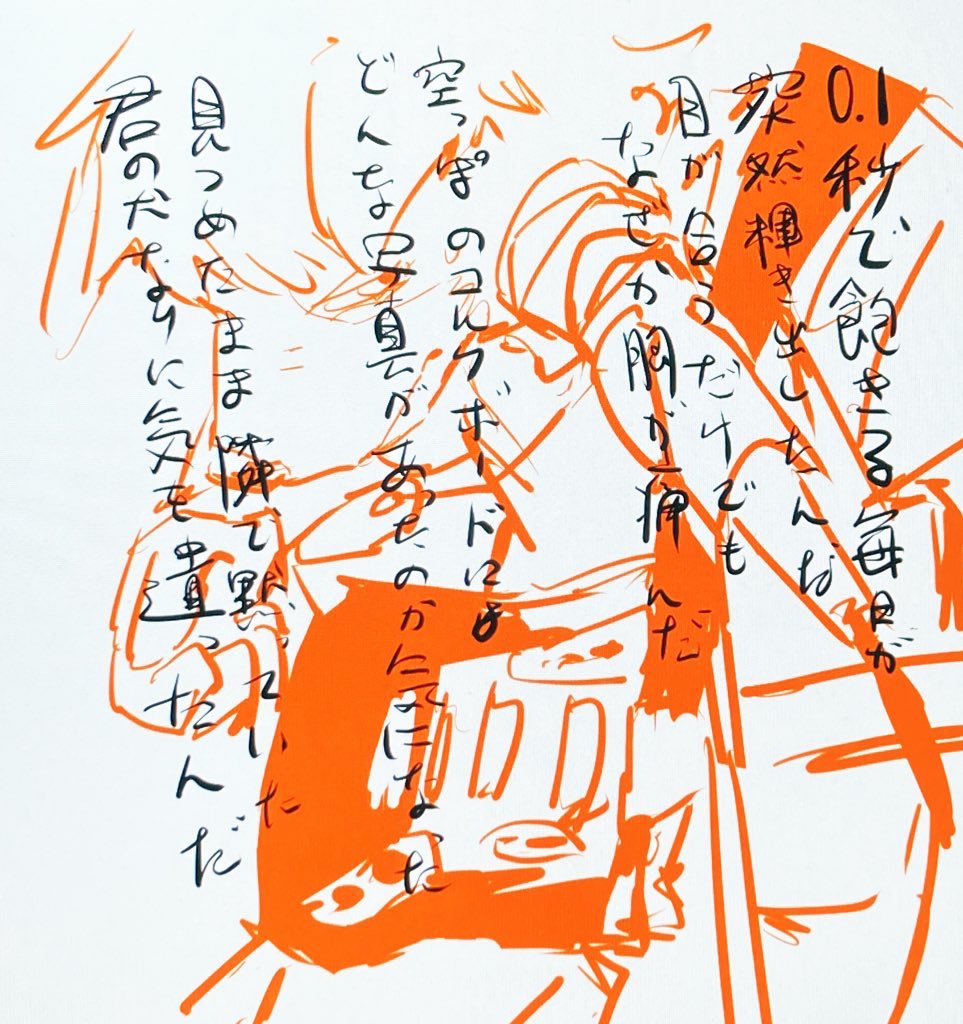 0.1秒で飽きる毎日が
突然輝き出したんだ
目が合うだけでも
なぜか胸が痛んだ
空っぽのコルクボードには
どんな写真があったのか気になった
見つめたまま隣で黙っていた
君の犬なりに気を遣ったんだ